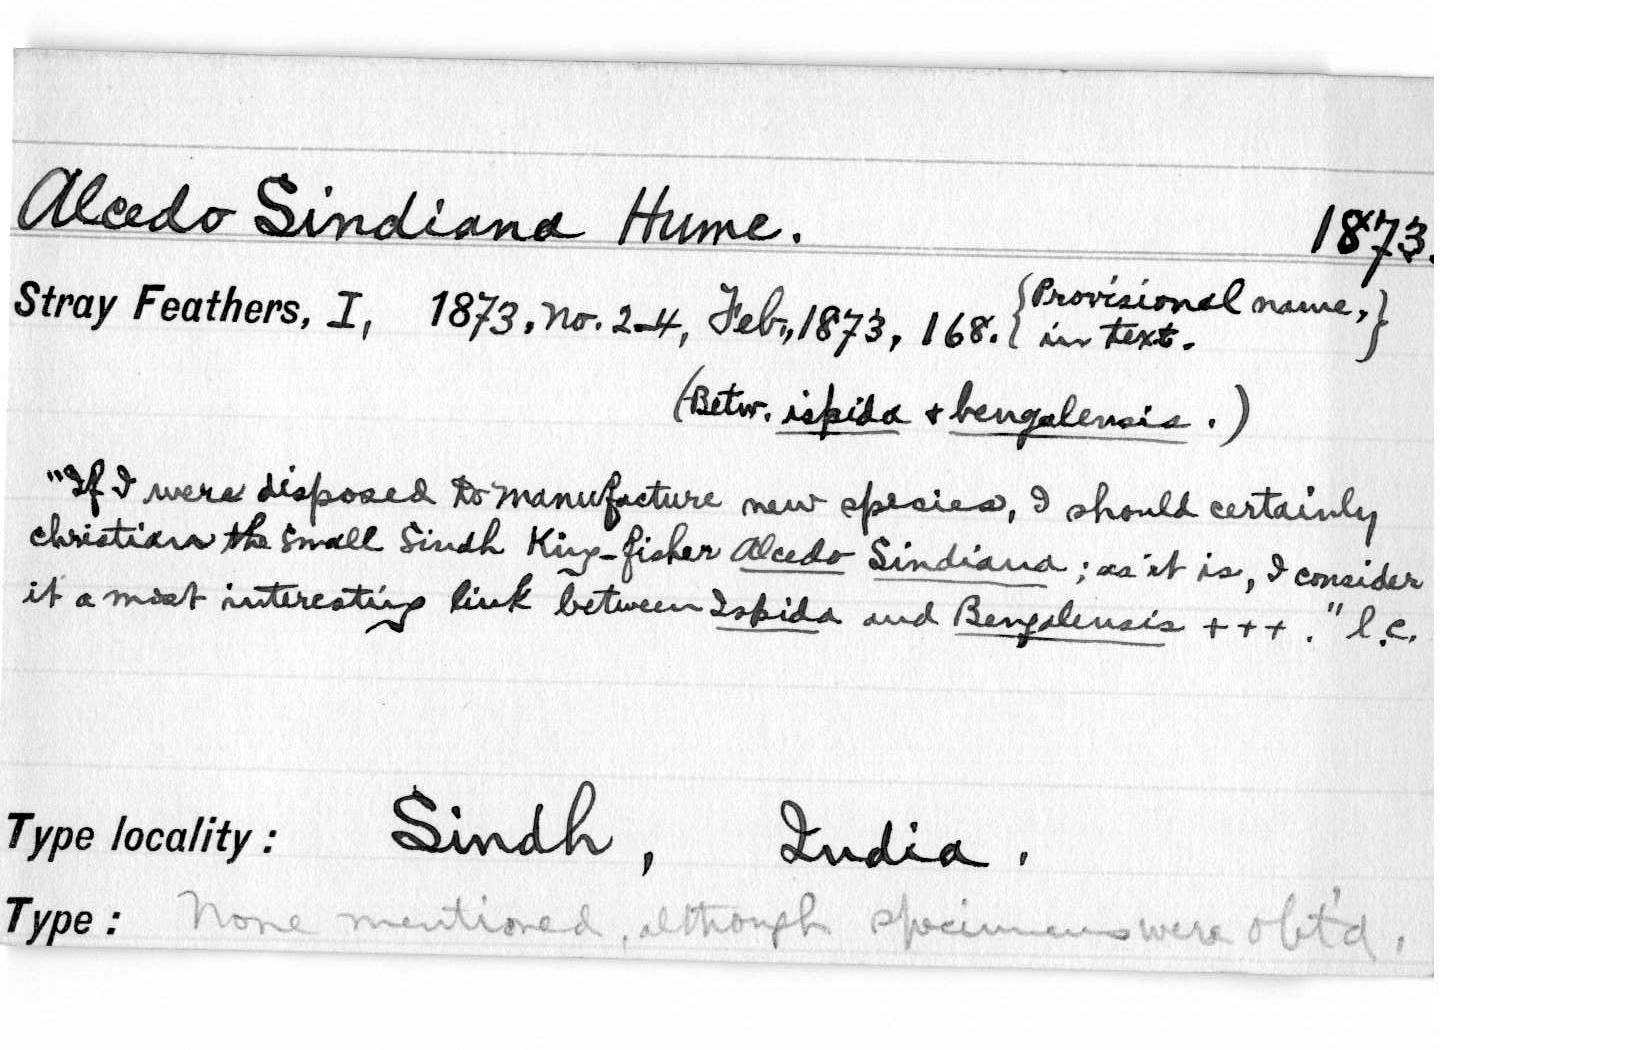 Alcedo Sindiana Hume. 1873.
Stray Feathers, I, 1873, no. 2-4, Feb., 1873, 168. {Provisional name, in text.}
(Betw. ispida + bengalensis.)
"If I were disposed to manufacture new species, I should certainly
christian the small Sindh King-fisher Alcedo Sindiana; as it is, I consider
it a most interesting link between Ispida and Bengalensis +++." l.c.
Type locality: Sindh, India.
Type: None mentioned, although specimens were obt'd.